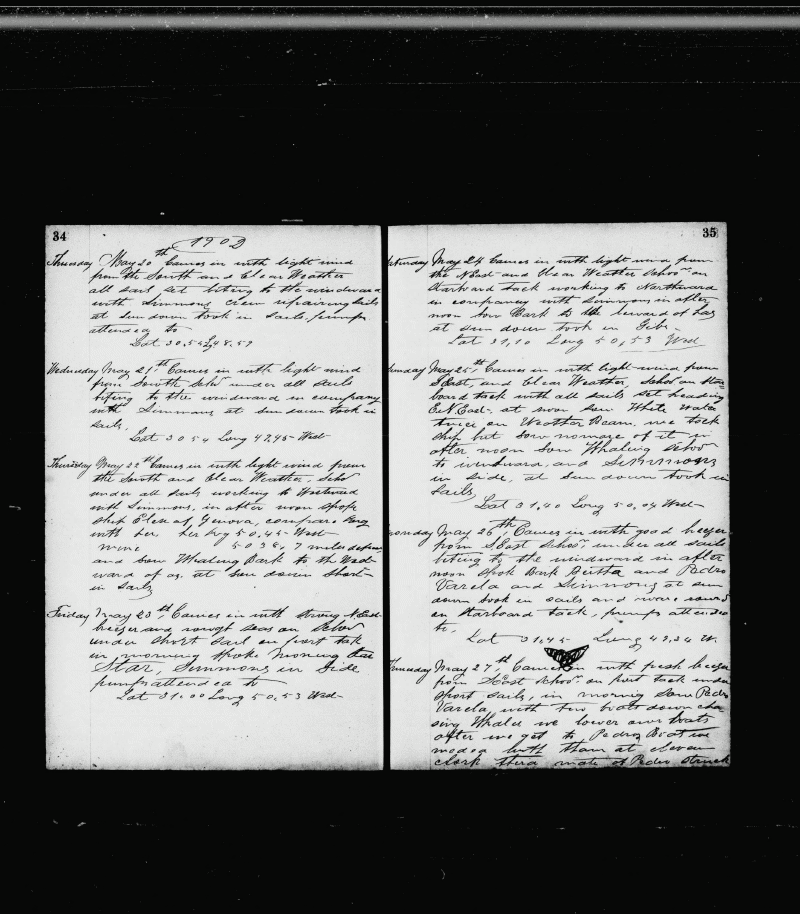 34
1902
Thuesday May 20th Comes in with light wind
from the South and Clear Weather
all sail set biting to the windward
with Simmons crew repairing sails
at sun down took in sails, pumps
attended to
Lat 30,54 Lg 48.59
Wednesday May 21th Comes in with light wind
from South Scho under all sails
biting to the windward in company
with Simmons at sun down took in
sails.
Lat 30 54 Long 49,45 West
Thursday May 22th Comes in with light wind from
the South and Clear Weather, Scho
under all sails working to Westward
with Simmons, in after noon spoke
ship Elen of Genova, compare Long
with her, her Lg 50,45 West
mine 50 38, 7 miles
and saw Whaling Bark to the
ward of us. at sun down short
in sails
Friday May 23th, Comes in with strong N.East
breezer and rough seas on Scho
under short sail on port tak
in morning spoke Morning
Star, Simmons in Side
pumps attended to
Lat 31.00 Long 50,53 West
35
May 24 Comes in with light wind from
the N.East and Clear Weather Schoor on
starboard tack working to Northward
in company with Simmons in after
noon saw Bark to the leward of us
at sun down took in Jibs
Lat 31,10 Long 50,53 West
May 25th Comes in with light wind from
S.East, and Clear Weather, Schoor on star=
board tack with all sails set heading
E.N.East. at noon saw White Water
twice on Weather Beam. we tack
ship but saw nomore of it in
after noon saw Whaling Schoor
to windward, and Simmons
in side, at sun down took in
sails,
Lat 31,40 Long 50,04 West
May 26th, Comes in with good breezer
from S.East Schoor, under all sails
biting to the windward in after
noon spok Bark and Pedro
Varela and Simmons at sun
down took in sails and
on starboard tack, pumps attended
to,
Lat 31,45 Long 49,34 W.
May 27th, Comes in with fresh breezer
from S.East Schoor, on port tack under
short sails, in morning saw Pedro
Varela, with two boats down cha=
sing Whales we lower our boats
after we got to Pedros Boat we
with them at eleven
clork mate of Pedro struck